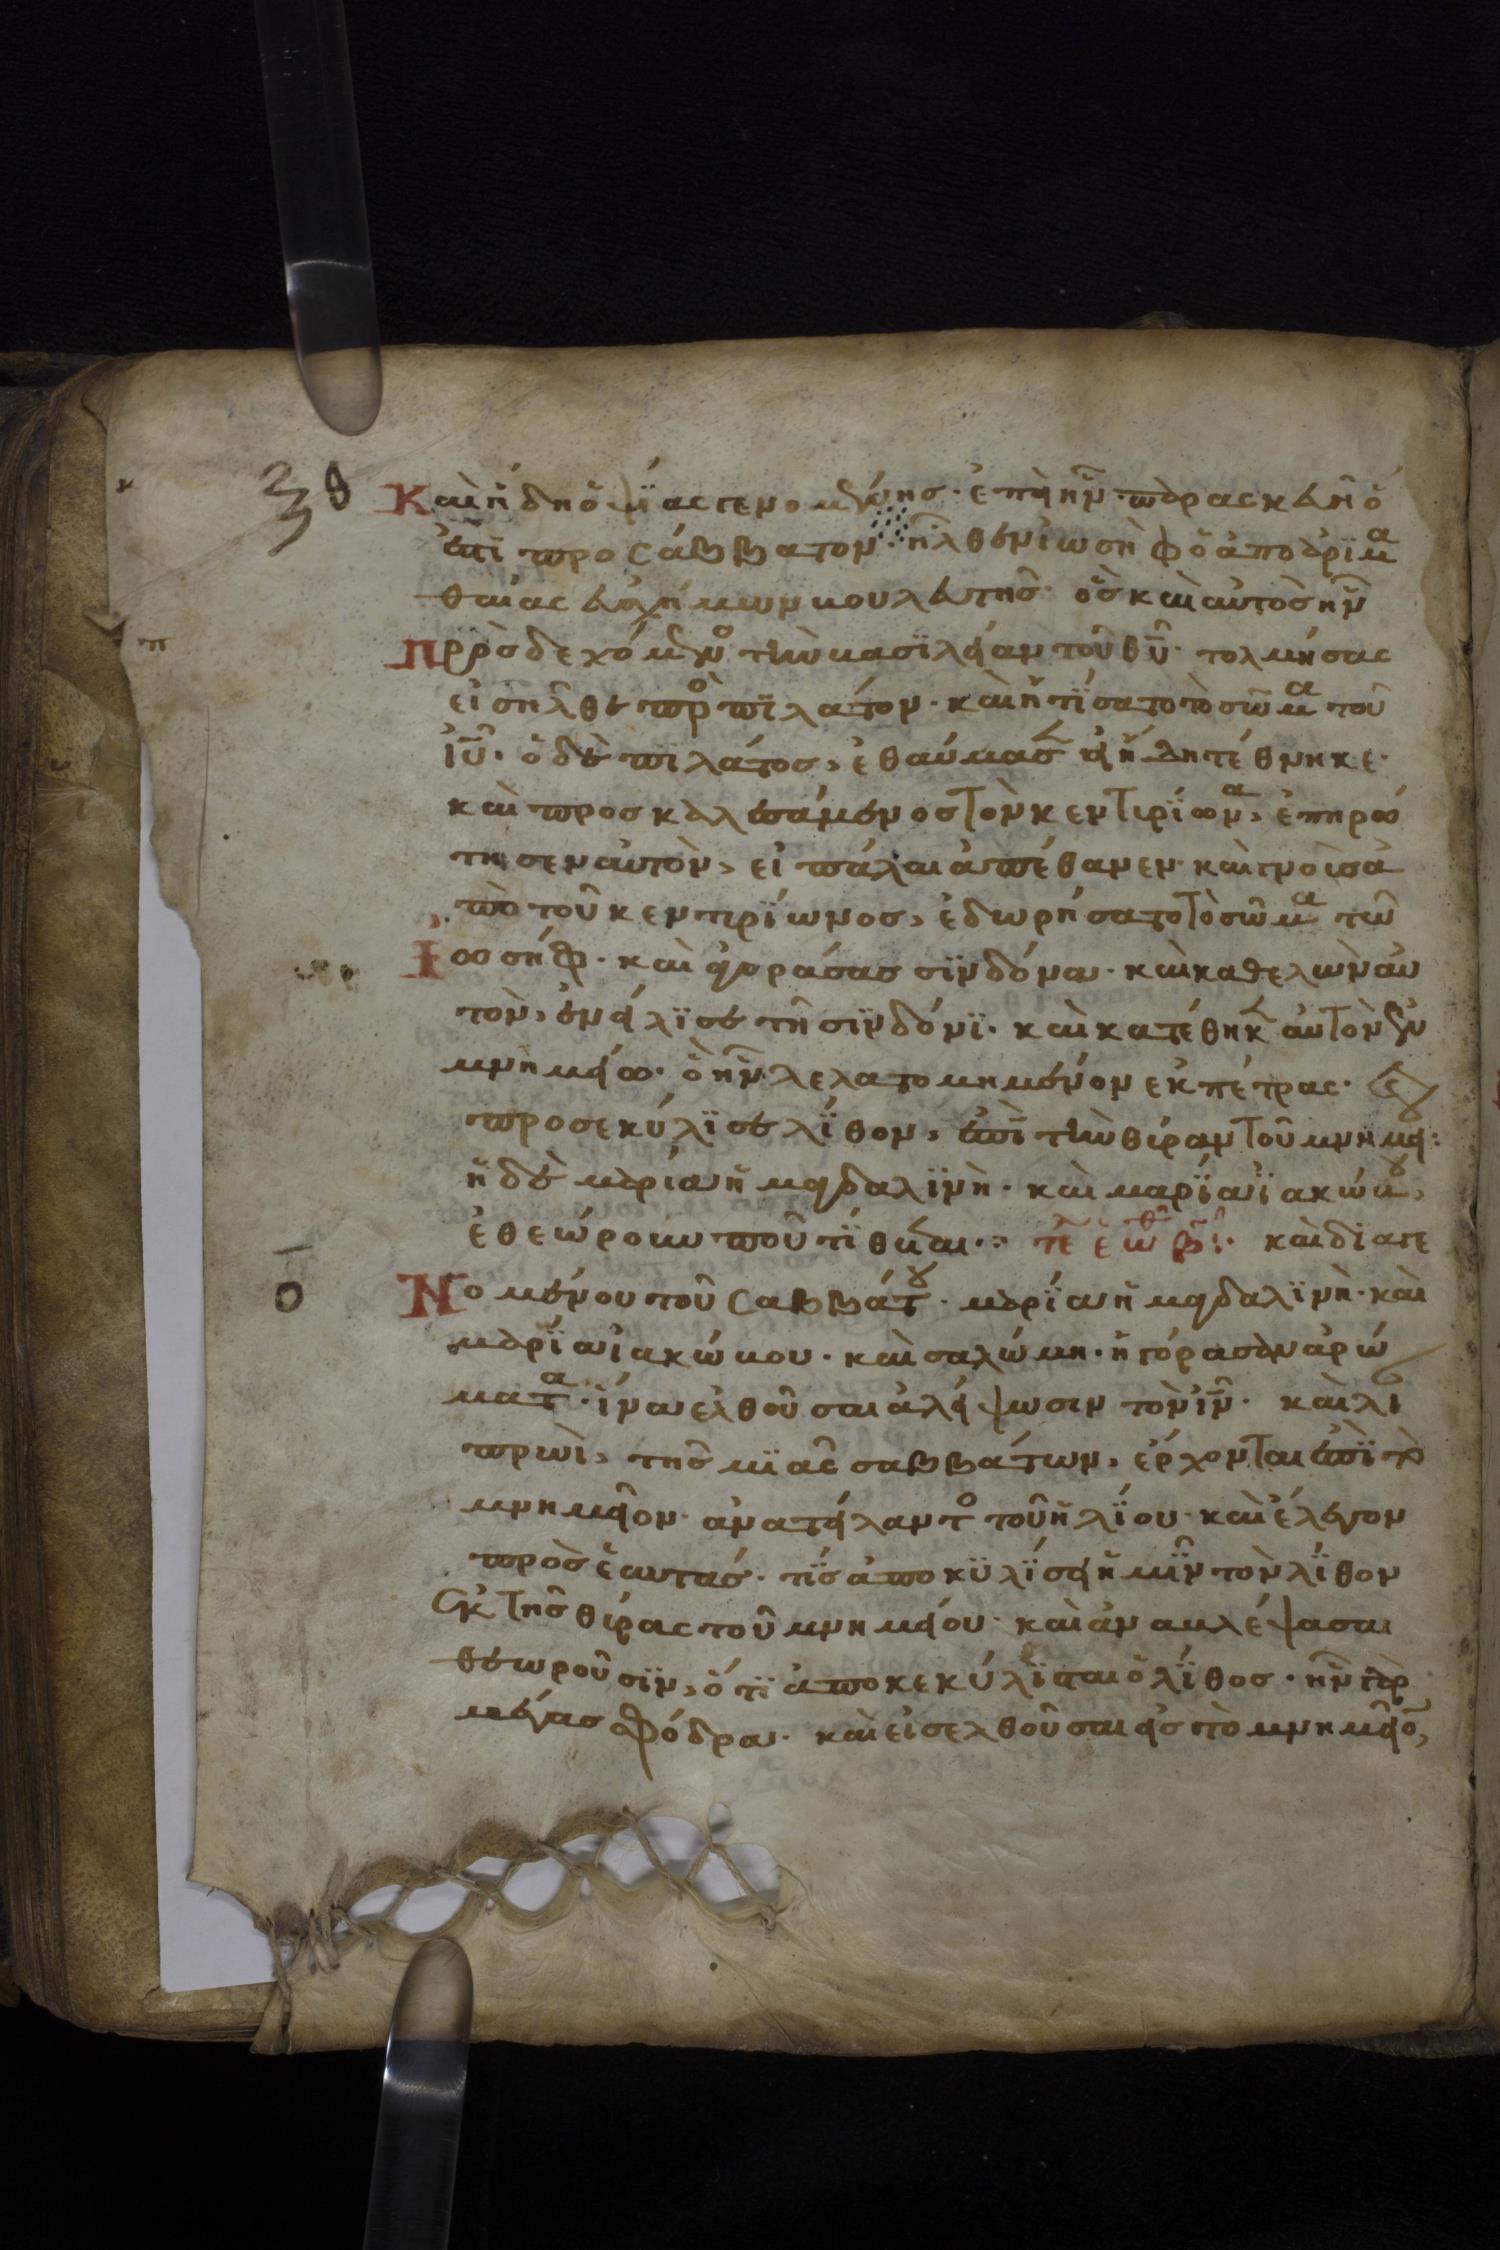 ϟθ Καὶ ἤδη ὀψΐας γενομένης· ἐπεὶ ἦν παρασκευὴ ὅ
ἐστϊ προσάββατον· ἦλθεν ἰωσὴφ ὁ ἀπὸ ἀρϊμα
θαίας εὐσχήμων βουλευτῆς· ὃς καὶ αὐτὸς ἦν
Πρὸσδεχόμενο τὴν βασϊλείαν τοῦ θῦ· τολμήσας
εἰσῆλθε προ πϊλάτον· καὶ ἠτΐσατο τὸ σῶμα τοῦ
ἰῦ· ὁ δὲ πϊλάτος, ἐθαύμασ εἰ ἤδη τέθνηκε·
καὶ προσκαλεσάμενος τὸν κεντιρΐωνα, ἐπηρώ
τησεν αὐτὸν, εἰ πάλαι ἀπέθανεν· καὶ γνοὶς ἀ
πὸ τοῦ κεντιρΐωνος, ἐδωρήσατο τὸ σῶμα τῶ
Ἰωσήφ· καὶ ἀγοράσας σϊνδόνα· καὶ καθελὼν αὐ
τὸν, ἐνείλϊσε τῆ σϊνδόνϊ· καὶ κατέθηκ αὐτὸν ἐν
μνημείω· ὃ ἦν λελατομημένον εκ πέτρας· καὶ
προσεκύλϊσε λΐθον, ἐπὶ τὴν θίραν τοῦ μνημεί:
ἡ δὲ μαρία ἡ μαγδαλϊνὴ· καὶ μαρΐα ϊακώβου,
ἐθεώρουν ποῦ τΐθεται·: τέ ἑωθ β: καὶ διαγε
ο Νομένου τοῦ σαββάτου· μαρΐα ἡ μαγδαλϊνὴ· καὶ
μαρΐα ἰακώβου· καὶ σαλώμη· ἠγόρασαν ἀρώ
ματα· ἵνα ελθοῦσαι ἀλείψωσιν τὸν ἰν· καὶ λί
πρωὶ, τῆς μϊᾶς σαββάτων, ἐρχονται ἐπὶ τὸ
μνημεῖον· ἀνατείλαντο τοῦ ἡλΐου· καὶ ἔλεγον
πρὸς ἑαυτάς· τΐς ἀποκϋλΐσει ἡμῖν τὸν λΐθον
ἐκ τῆς θίρας τοῦ μνημείου· καὶ ἀναβλέψασαι
θεωροῦσϊν, ὅτϊ ἀποκεκύλϊται ὁ λΐθος· ἦν γὰρ
μέγας σφόδρα· καὶ εἰσελθοῦσαι εἰς τὸ μνημεῖο,